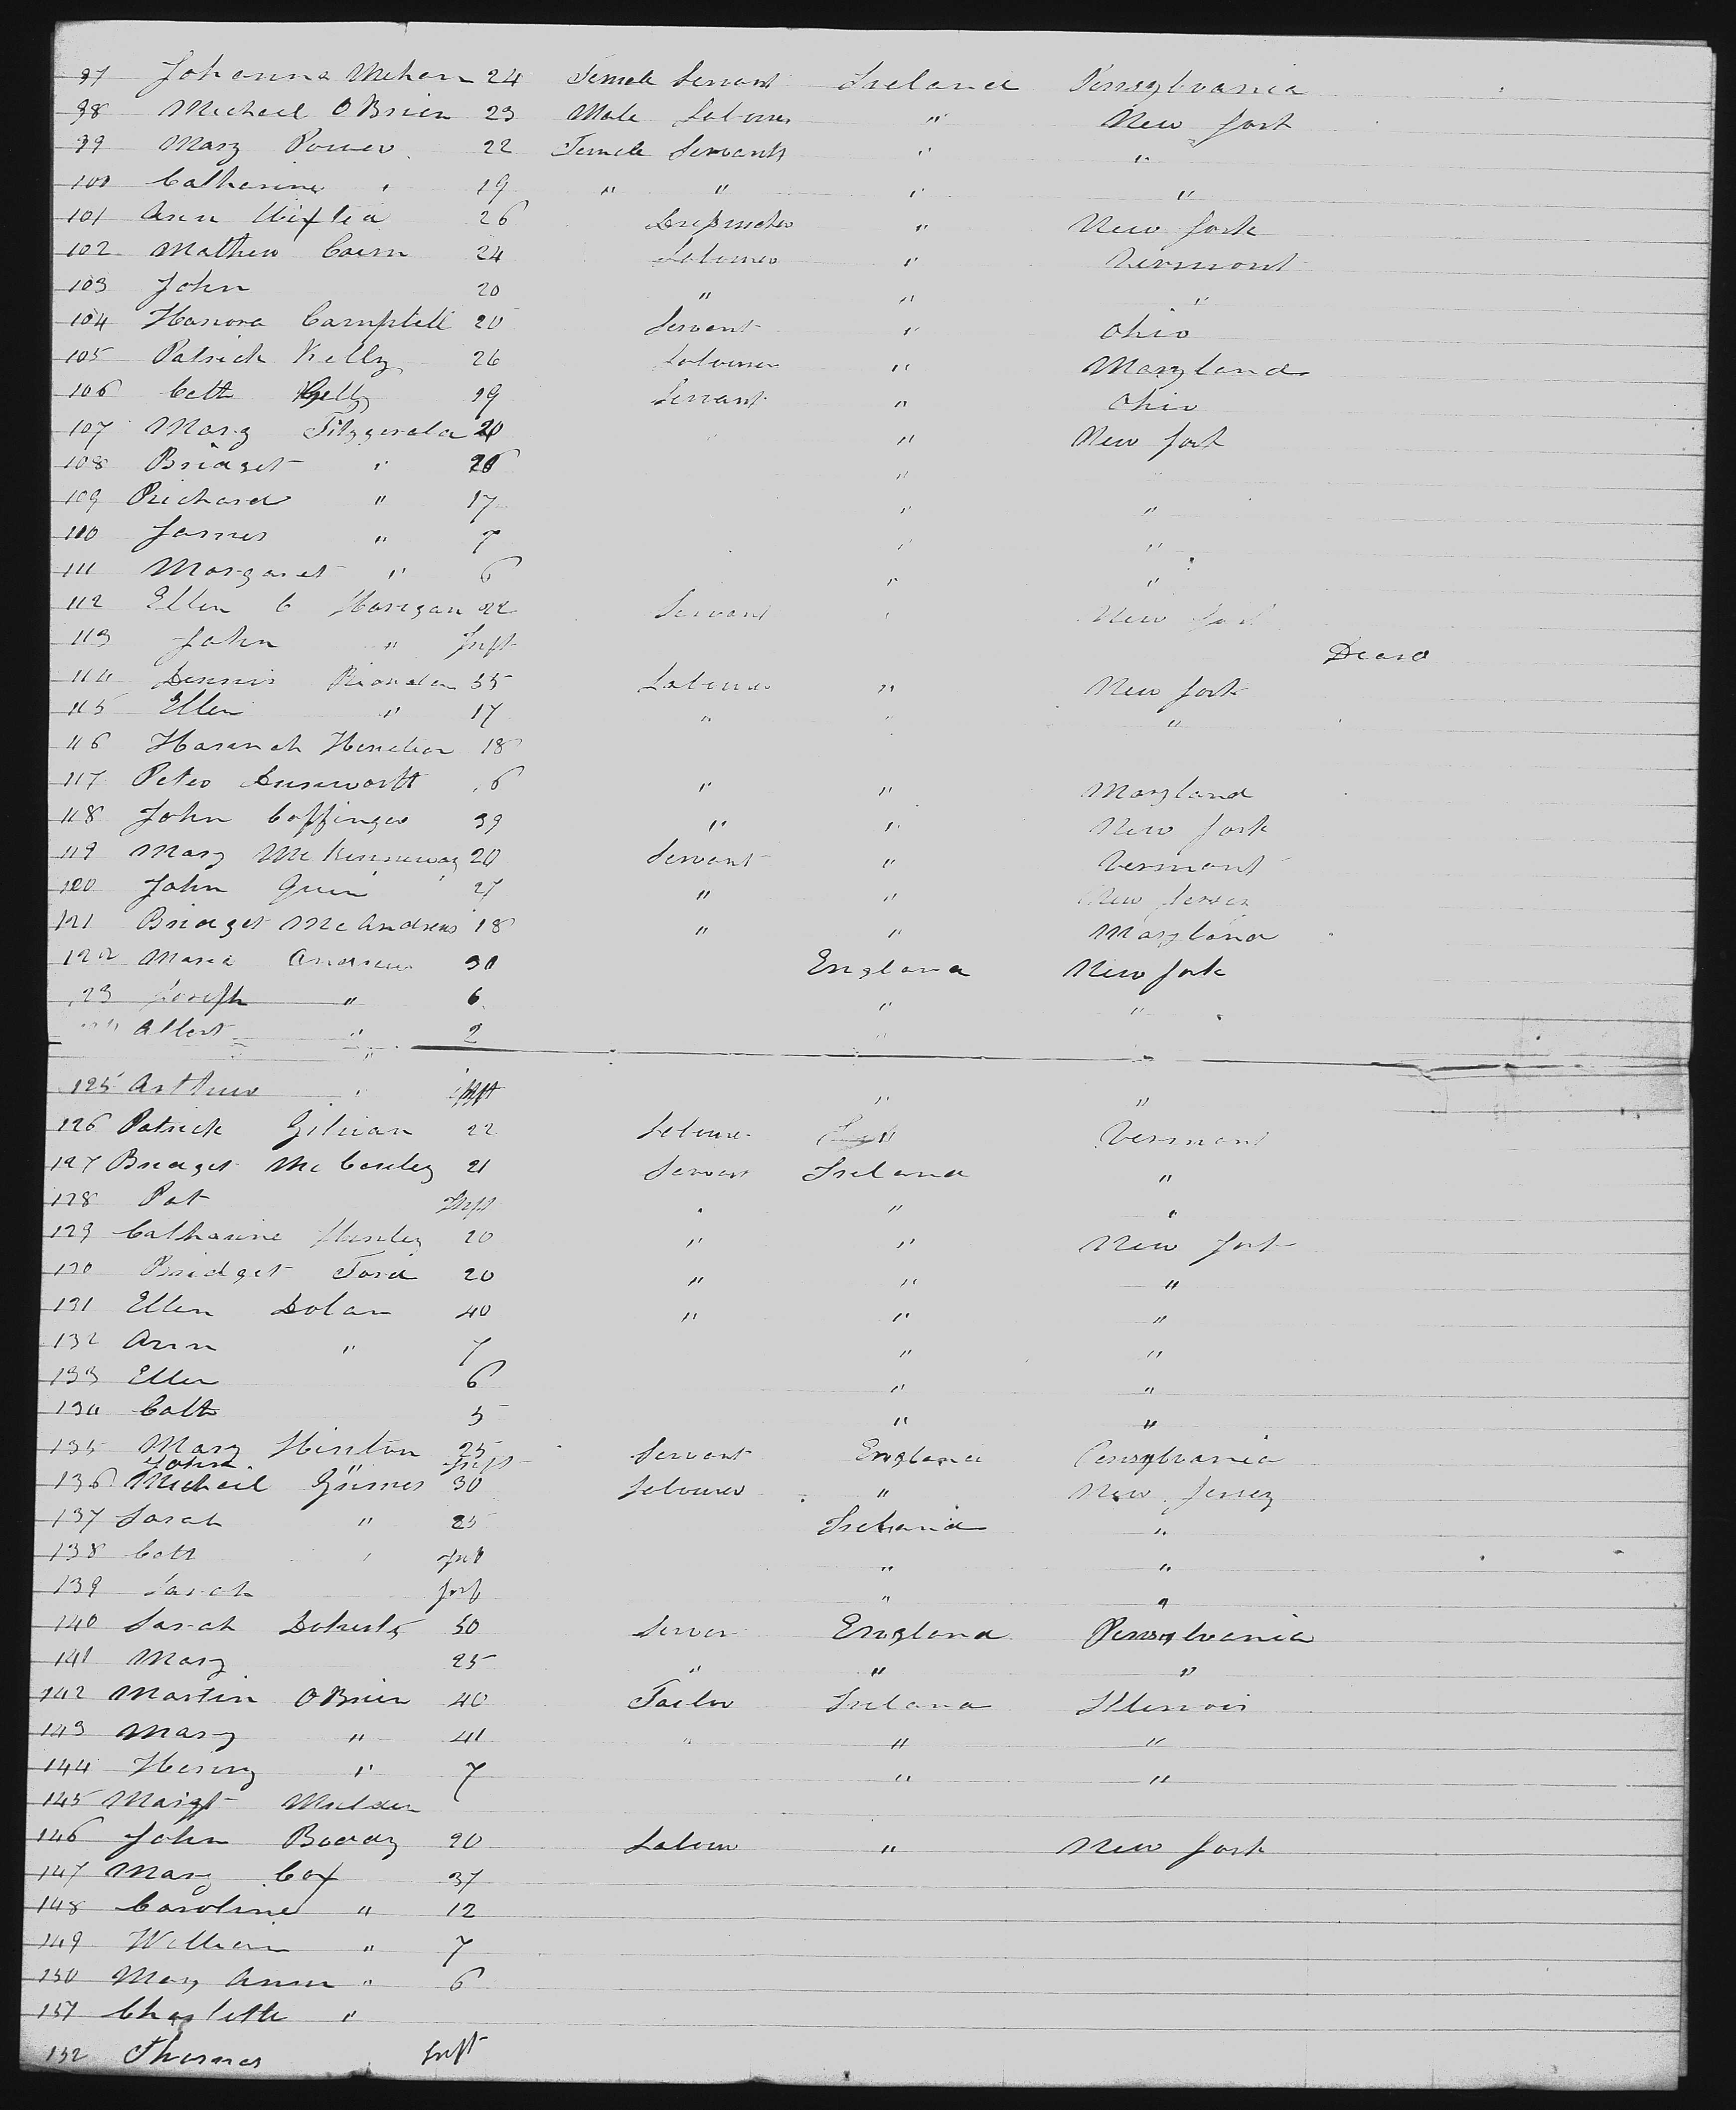 97 Johanna Mehan 24 Female Servant Ireland Pensylvania
98 Michael O Brien 23 Male Labourer " New York
99 Mary Power 22 Female Servants " "
100 Catherine " 19 " " " "
101 Ann 26 Dressmaker " New York
102 Mathew 24 Labourer " Vermont
103 John 20 " " "
104 Hanora Campbell 20 Servant " Ohio
105 Patrick Kelly 26 Labourer " Maryland
106 Cath Kelly 19 Servant " Ohio
107 Mary Fitzgerald 20 " " New York
108 Bridget " 26 "
109 Richard " 17 " "
110 James " 7 " "
111 Margaret " 6 " "
112 Ellen C Harigan 22 Servant " New York
113 John " Inft Dead
114 Dennis Riordan 35 Labourer " New York
115 Ellen " 17 " " "
116 Hannah 18
117 Peter 6 " " Maryland
118 John Coffinger 39 " " New York
119 Mary 20 Servant " Vermont
120 John 27 " " New Jersey
121 Bridget McAndrews 18 " " Maryland
122 Maria Andrew 30 England New York
123 Joseph " 6 " "
Albert " 2 "
125 Arthur " inft " "
126 Patrick Gilivan 22 Labourer " Vermont
127 Bridget McCauley 21 Servant Ireland "
128 Pat Inft " " "
129 Catharine 20 " " New York
130 Bridget Ford 20 " " "
131 Ellen Dolan 40 " " "
132 Ann " 7 " "
133 Ellen 6 " "
134 Cath 5 " "
135 Mary Hinton 25 Servant England Pensylvania
John " Inft
136 Michael Grimes 30 Labourer " New Jersey
137 Sarah " 25 Ireland "
138 Cath " Inft " "
139 Sarah Inft " "
140 Sarah Doherty 50 Servan England Pensylvania
141 Mary 25 " " "
142 Martin O Brien 40 Tailor Ireland Illinois
143 Mary " 41 " " "
144 Henry " 7 " "
145 Margt
146 John 20 Labour " New York
147 Mary Cox 37
148 Caroline " 12
149 William " 7
150 Mary Ann " 6
151 Charlotte "
152 Thomas Inft